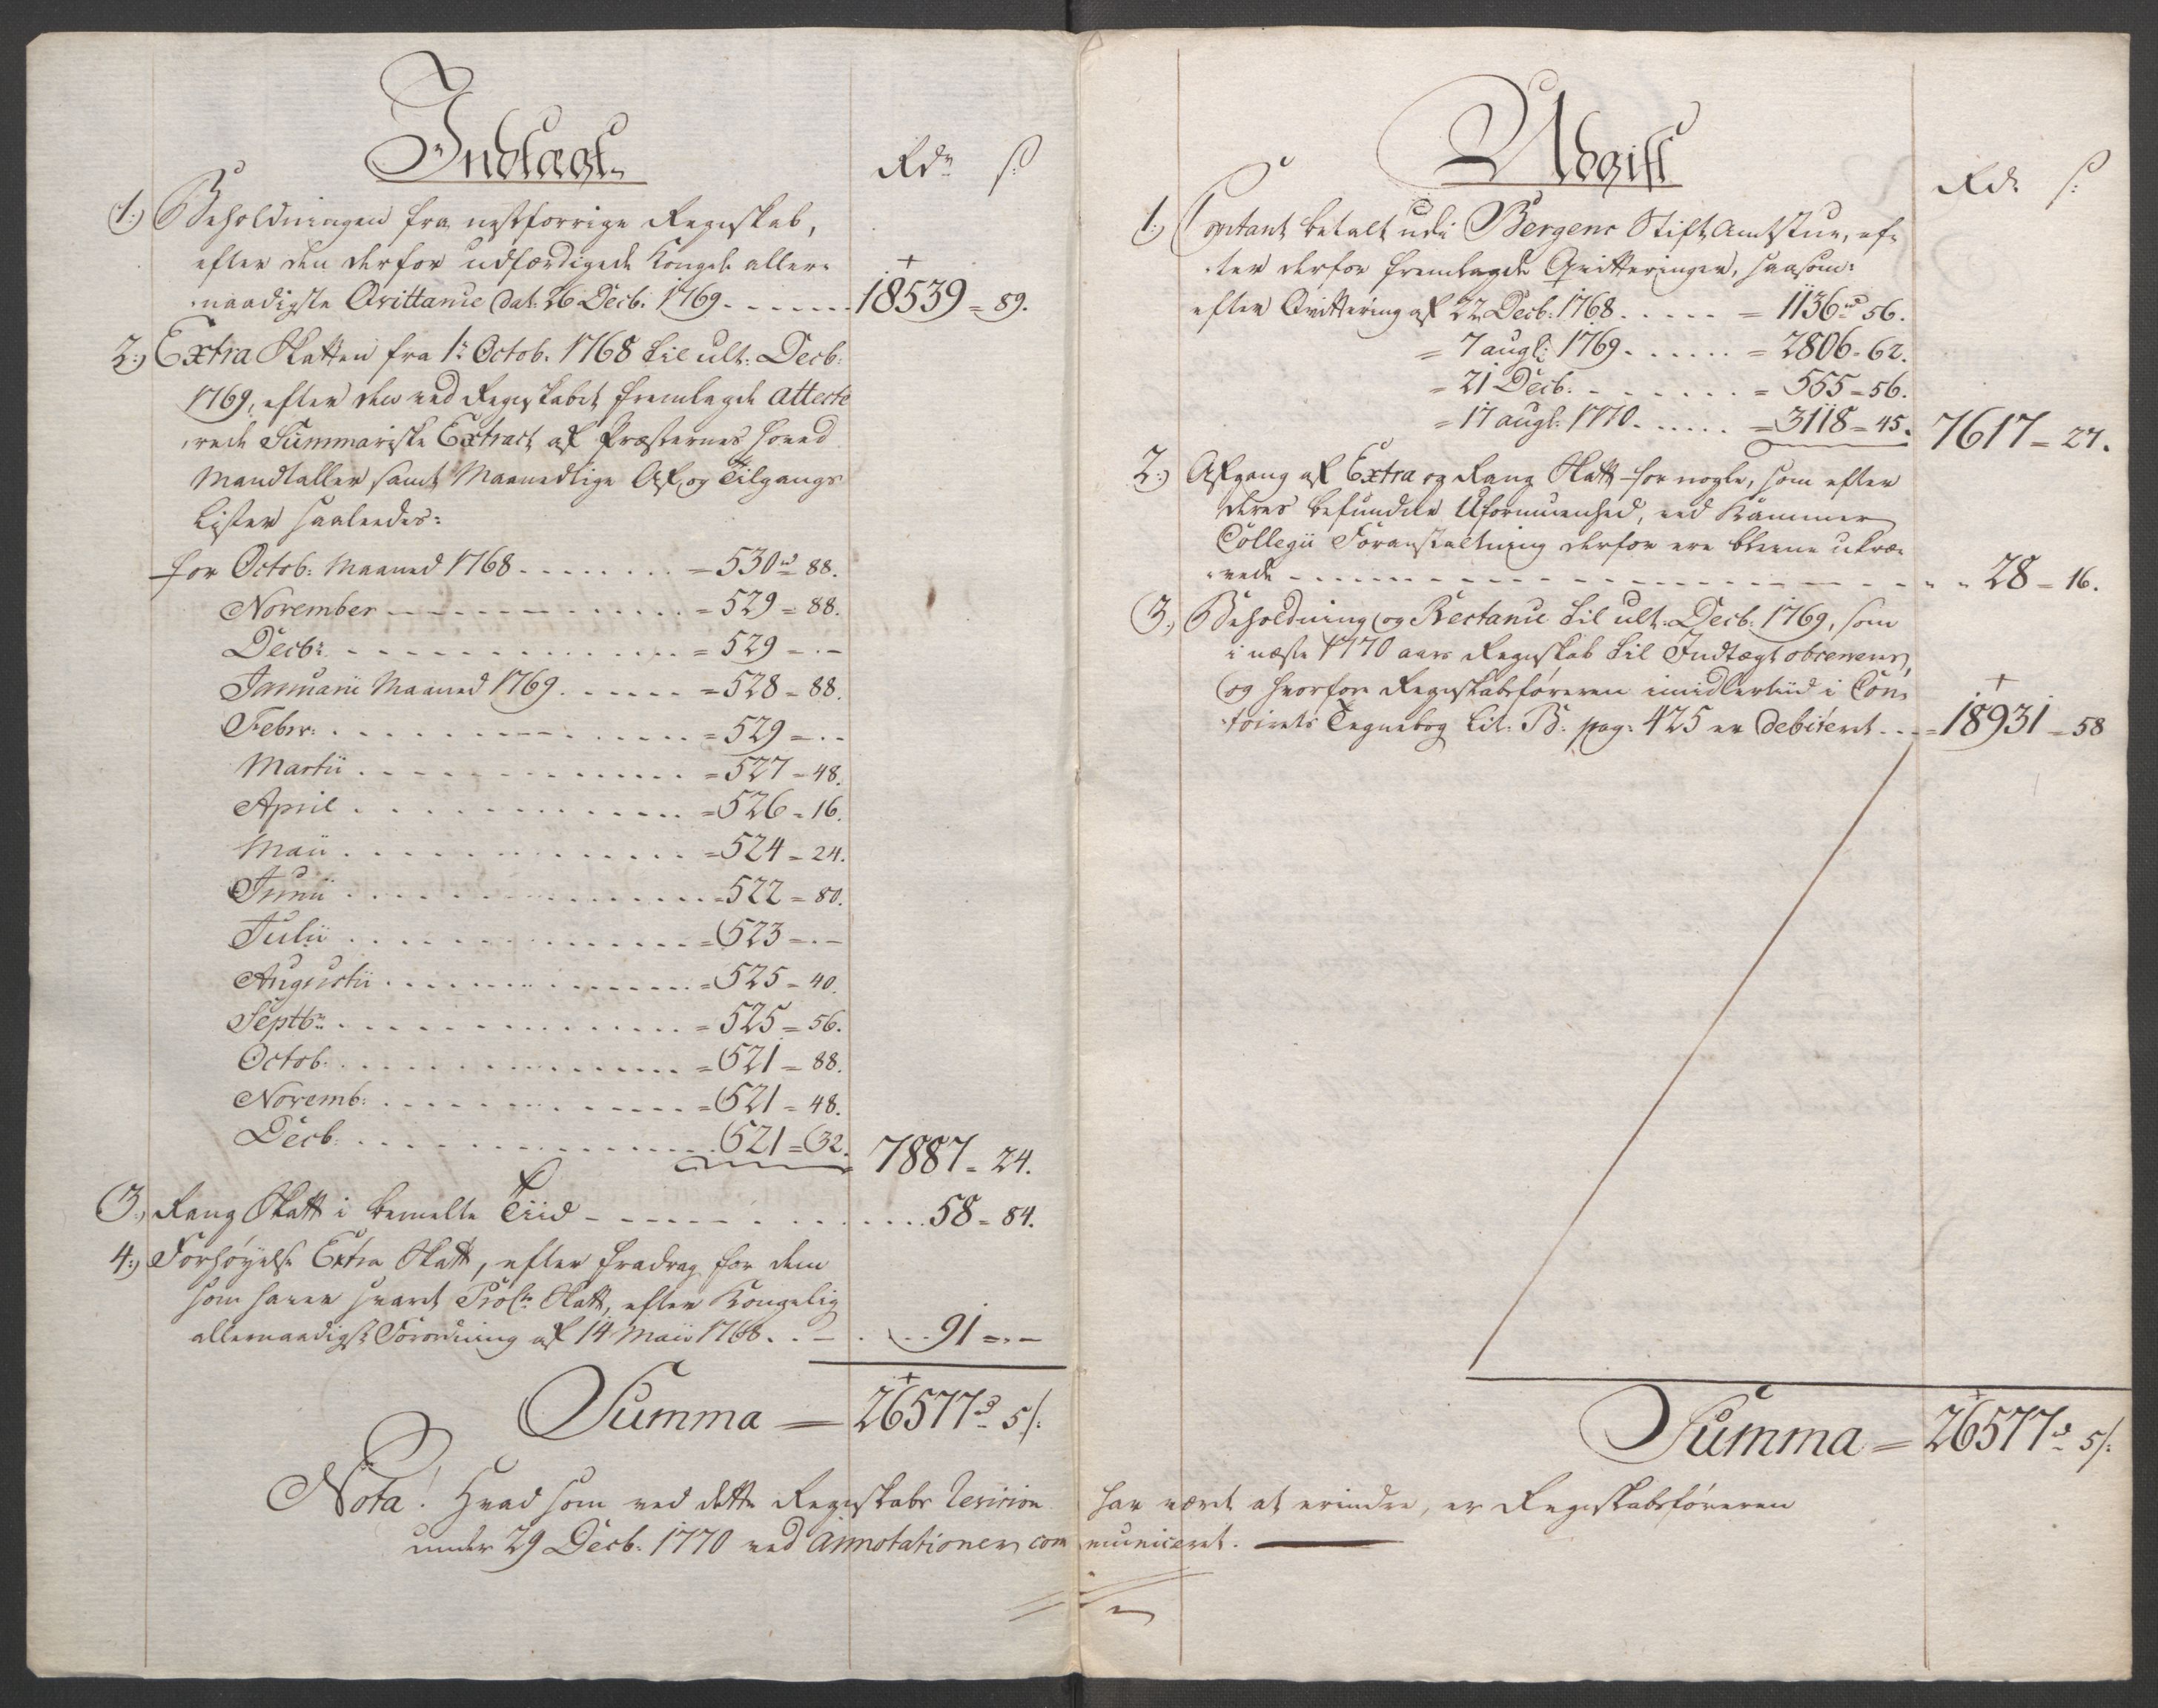 Indtægt
Rdr ß:
1.) Beholdningen fra nestforrige Regnskab,
efter den derfor udfærdigede Kongel: aller-
naadigste Qvittance dat: 26 Decb. 1769 18539 = 89.
2.) Extra Skatten fra 1: Octob. 1768 til ult: Decb.
1769, efter den ved Regnskabet fremlagde atteste
rede Summariske Extract af Præsternes Hoved
Mandtaller samt Maanedlige Af og Tilgangs
Lister saaledes:
for Octob: Maaned 1768 = 530 = 88.
November = 529 = 88.
Decbr: = 529 = . -
Januarii Maaned 1769 = 528 = 88.
Febr: = 529 = . -
Martii = 527 = 48.
April = 526 = 16.
Maii = 524 = 24.
Junii = 522 = 80.
Julii = 523 = . -
Augustii = 525 = 40.
Septbr: = 525 = 56.
Octob. = 521 = 88.
Novemb: = 521 = 48.
Decb. 521 = 32. 7887 = 24.
3.) Rang Skatt i bemelte Tiid 58 = 84.
4.) Forhøyelse Extra Skatt, efter fradrag for dem
som haver svaret Skatt, efter Kongelig
allernaadigst Forordning af 14 Maii 1768 91 = . -
Summa = 26577 5 ß:
Udgift
Rdr ß:
1.) Contant betalt udi Bergens Stift Amtstue, ef-
ter derfor fremlagde Qvitteringer, saasom:
efter Qvittering af 22 Decb: 1768 = 1136 56.
= 7 augl: 1769 = 2806 = 62.
= 21 Decb. = 555 = 56.
= 17 augl: 1770 = 3118 = 45. 7617 = 27.
2.) Afgang af Extra og Rang Skatt for nogle, som efter
deres befundne Uformuenhed, ved Kammer
Collegii Foranstaltning derfor ere blevne ukræ-
vede 28 = 16.
3.) Beholdning og Restance til ult: Decb: 1769, som
i næste 1770 aars Regnskab til Indtægt observeres,
og hvorfore Regnskabsføreren imidlertiid i Con-
toirets Tegnebog Lit: B: pag: 425 er debiteret 18931 = 58
Summa = 26577 5 ß:
Nota! Hvad som ved dette Regnskabs Revision har været at erindre, er Regnskabsføreren
under 29 Decb. 1770 ved Annotationer communiceret.